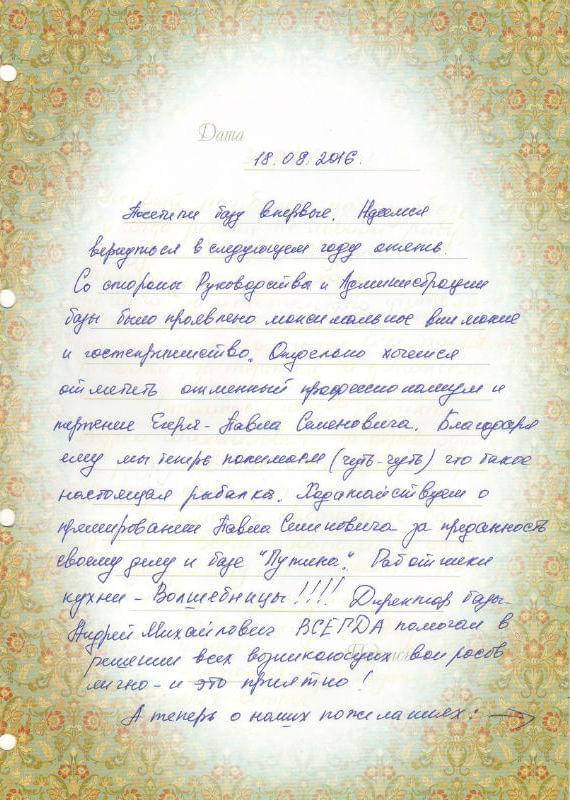 Дата
18.08.2016.
Посетили базу впервые. Надеемся
вернуться в следующем году опять.
Со стороны Руководства и Администрации
базы было проявлено максимальное внимание
и гостеприимство. Отдельно хочется
отметить отменный профессионализм и
терпение Егеря - Павла Семеновича. Благодаря
ему мы теперь понимаем (чуть-чуть) что такое
настоящая рыбалка. Ходатайствуем о
премировании Павла Семеновича за преданность
своему делу и базе "Путина". Работники
кухни - Волшебницы!!!! Директор базы -
Андрей Михайлович ВСЕГДА помогал в
решении всех возникающих вопросов
лично - и это приятно!
А теперь о наших пожеланиях: →